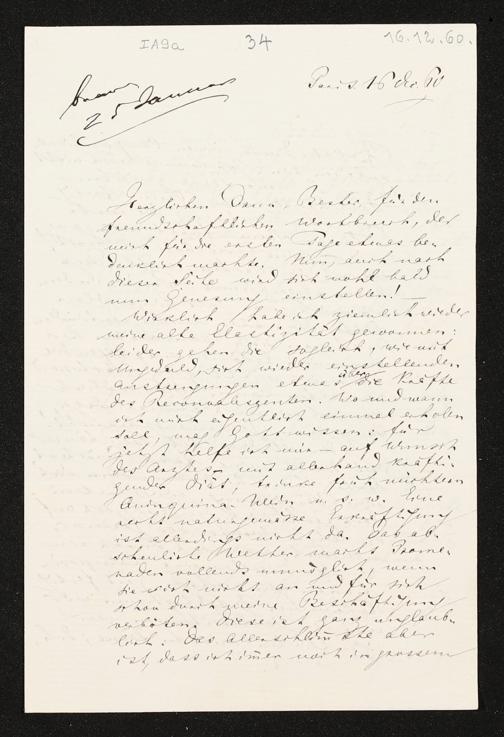 IA9a 34 16.12.60.
25 Januar
Paris 16 Dec. 60
Herzlichen Dank, Bester, für den
freundschaftlichen Wortbruch, der
mich für die ersten Tage etwas be-
denklich machte. Nun, auch nach
dieser Seite wird sich wohl bald
nun Genesung einstellen! —
Wirklich habe ich ziemlich wieder
meine alte Elastizität gewonnen:
leider gehen die sogleich, wie mit
Ungeduld, sich wieder einstellenden
Anstrengungen etwas über die Kräfte
des Reconvalescenten. Wo und wann
ich mich eigentlich einmal erholen
soll, mag Gott wissen: für
jetzt helfe ich mir – auf Wunsch
des Arztes – mit allerhand kräfti-
gender Diät, trinke früh nüchtern
Quinquina-Wein u. s. w. Eine
recht naturgemässe Erkräftigung
ist allerdings nicht da. Das ab-
scheuliche Wetter macht Prome-
naden vollends unmöglich, wenn
sie mir nicht an und für sich
schon durch meine Beschäftigung
verboten. Diese ist ganz unglaub-
lich. Das Allerschlimmste aber
ist, dass ich immer noch in grossem